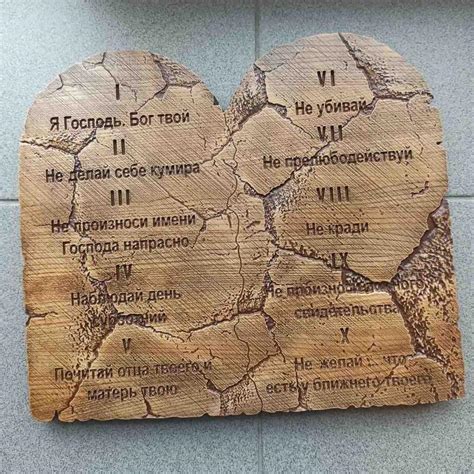 I
Я Господь. Бог твой
II
Не делай себе кумира
III
Не произноси имени
Господа напрасно
IV
Наблюдай день
субботний
V
Почитай отца твоего и
матерь твою
VI
Не убивай
VII
Не прелюбодействуй
VIII
Не кради
IX
Не произноси
свидетельства
X
Не желай что
есть у ближнего твоего